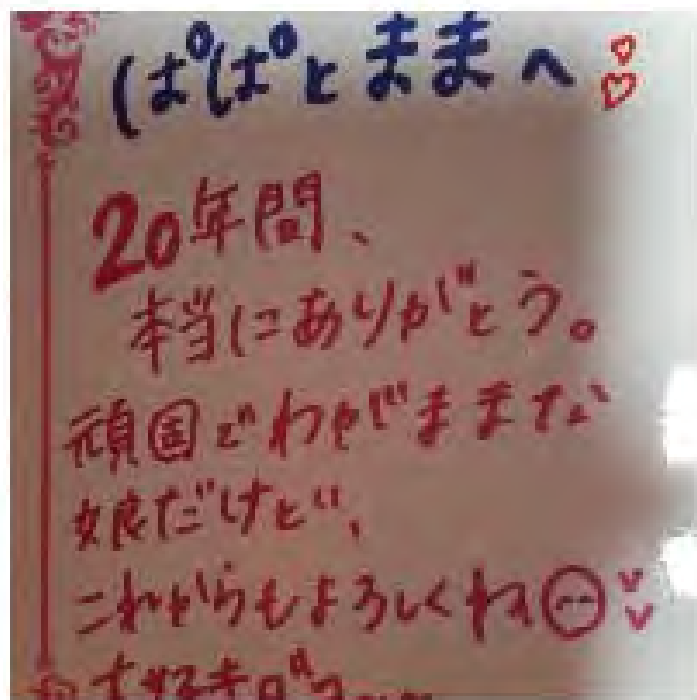 ぱぱとままへ
20年間、
本当にありがとう。
頑固でわがままな
娘だけど、
これからもよろしくね
大好き